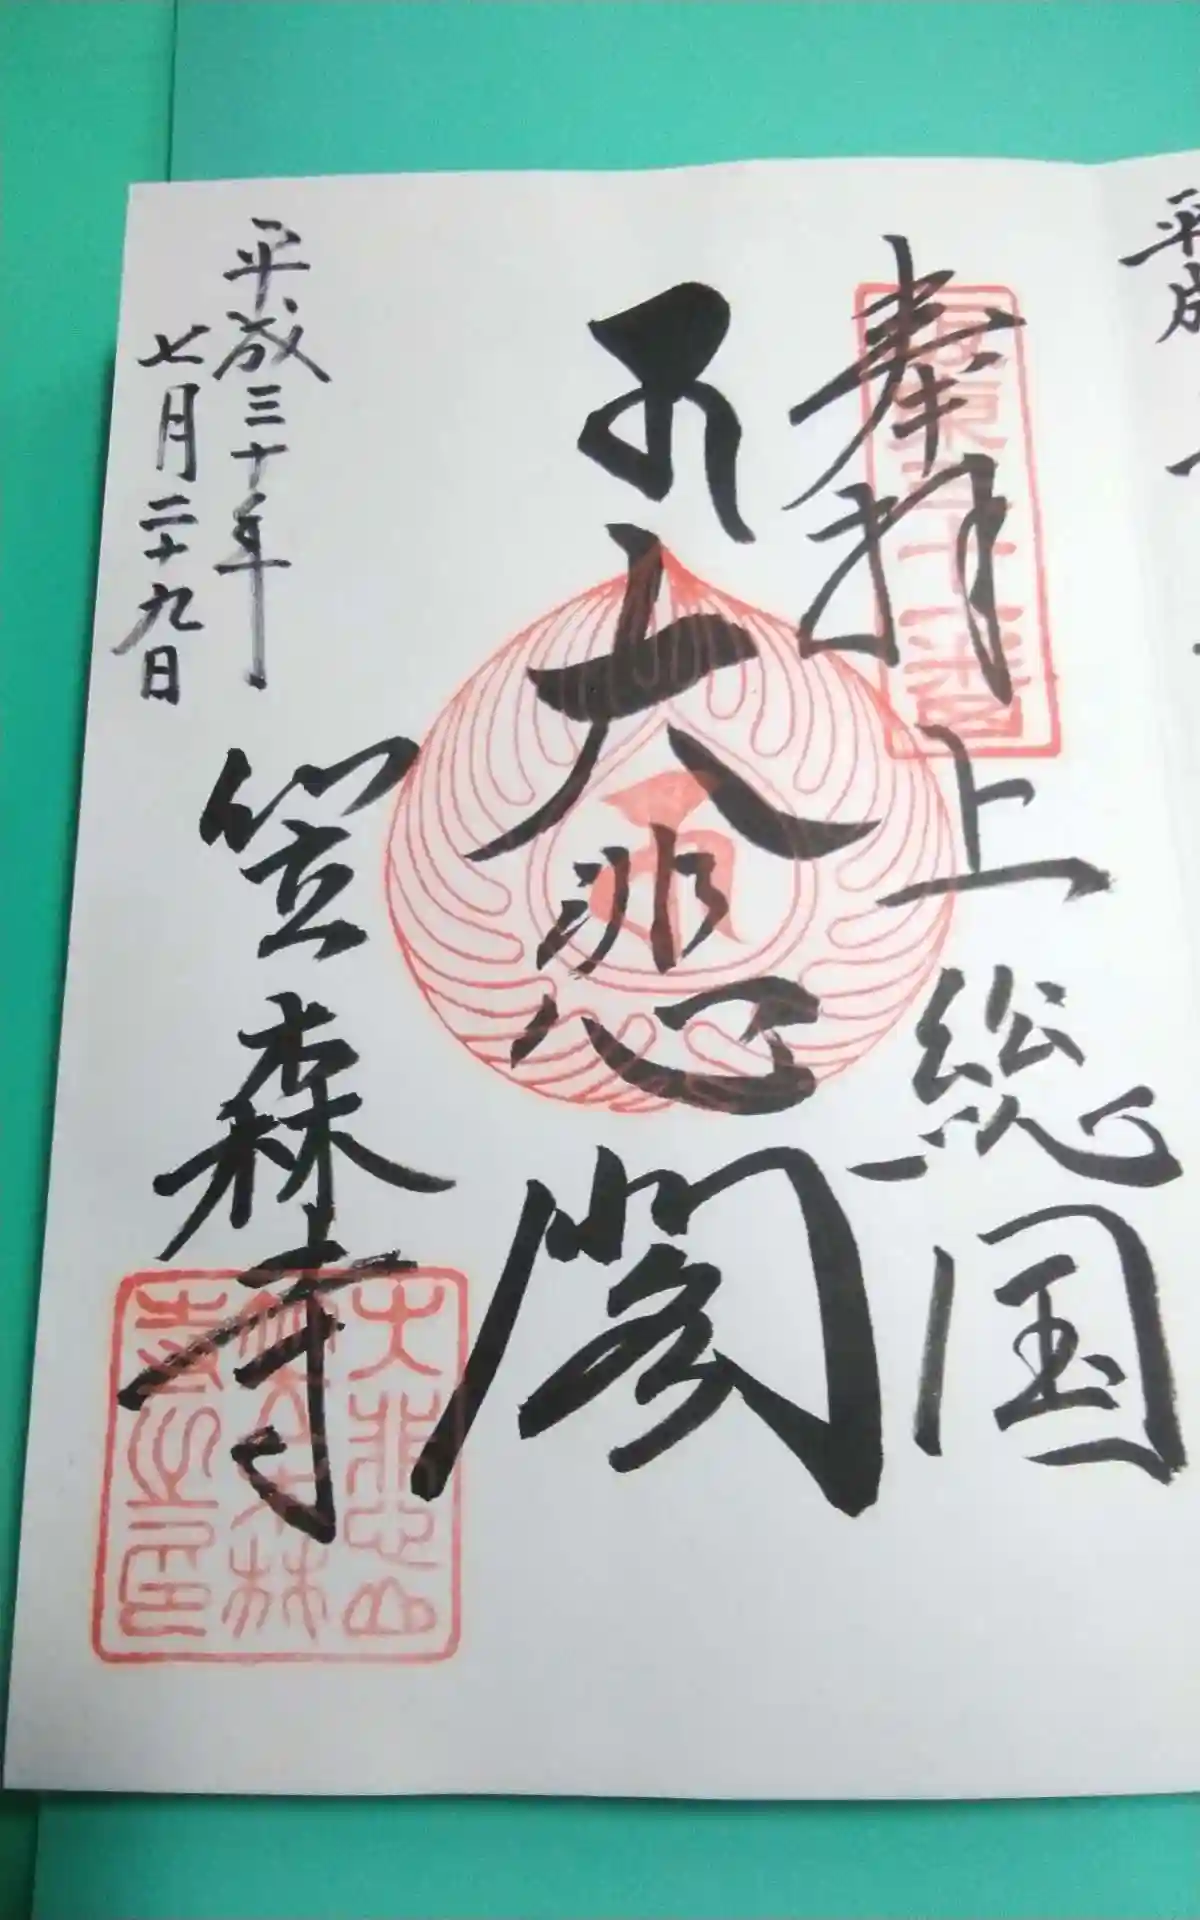 平成
奉拝
坂東三十一番
上総国
大悲閣
笠森寺
大悲山
笠森
寺之印
平成三十年
七月二十九日